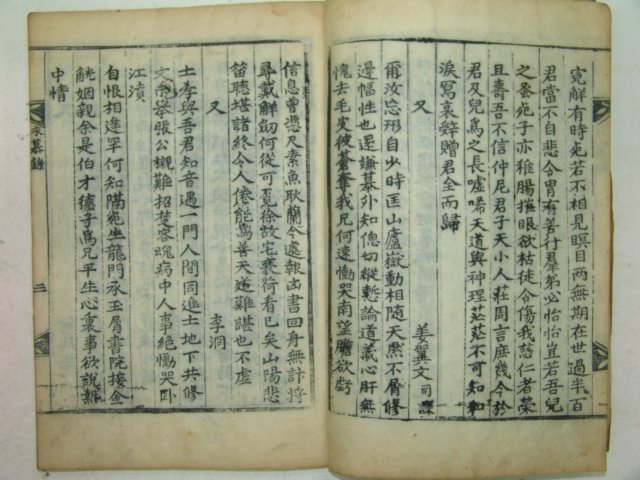 寬解有時宛若不相見瞑目兩無期在世過半百
君當不自悲令胄有善行羣弟必怡怡豈若吾兒
之至宛子亦稚腸摧眼欲枯徒令傷我慈仁者榮
且壽吾不信仲尼君子天小人莊周言庶幾今於
君及兒爲之長噓唏天道與神理茫茫不可知和
淚寫哀辭贈君全而歸
又
姜翼文 司課
爾汝忘形自少時匡山廬嶽動相隨天然不屑修
邊幅性也還嫌慕外知偲切縱慙論道義心肝無
愧去毛皮彼蒼奪我兄何速慟哭南望膽欲虧
信息曾憑尺素魚耿蘭今處報凶書回舟無計將
尋戴解劒何從可覓徐故宅褒符看已矣山陽悲
笛聽堪諸終令人倦能爲善天道難諶也不虛
又
李洞
士孝與吾君知音遇一門人間同進士地下共修
文宗擧張公櫬難招楚客魂病中人事絶慟哭臥
江濆
自恨相逢罕何知隔宛生龍門承玉屑書院接金
觥姻親余是伯才德子爲兄平生心裏事欲說
中情
永慕錄
二